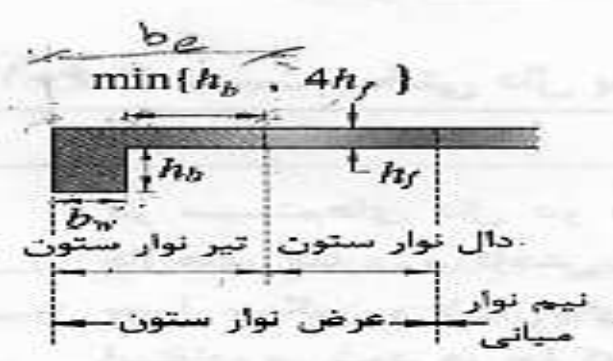 be
min{h_b , 4h_f}
h_b
h_f
b_w
تیر نوار ستون
دال نوار ستون
عرض نوار ستون
نیم نوار
میانی